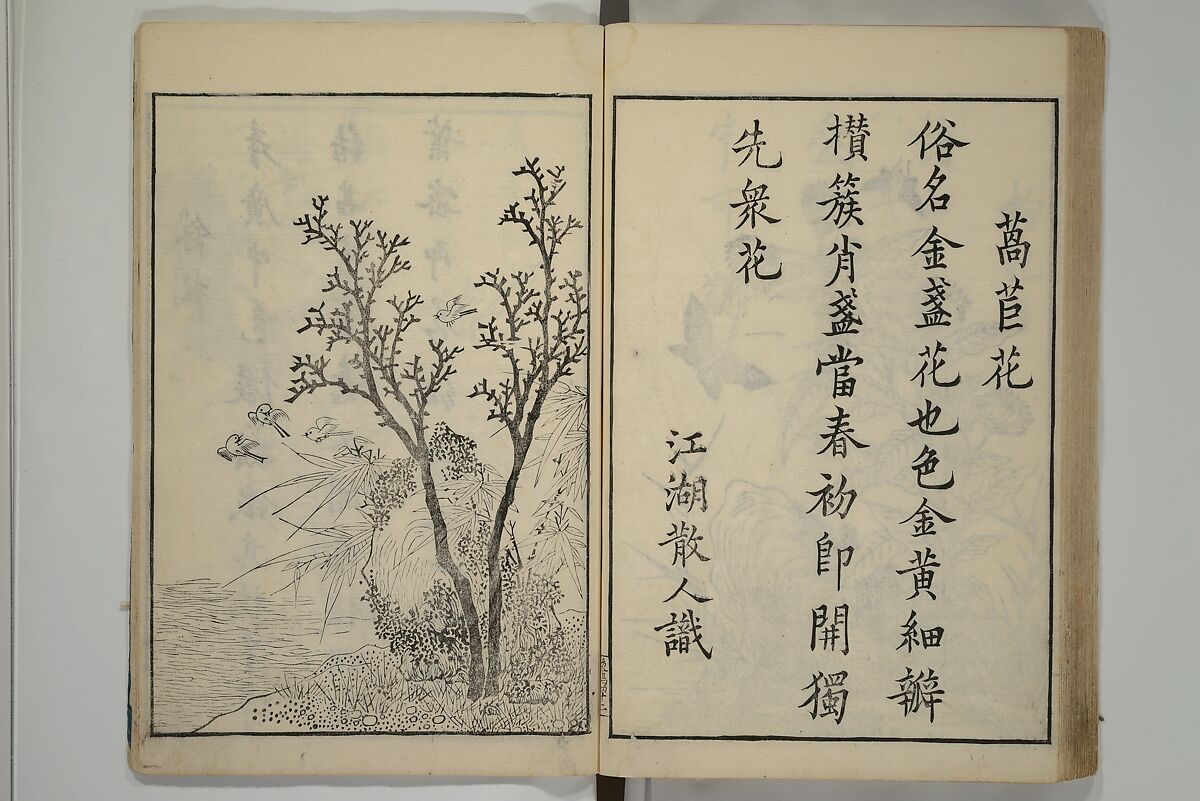 萵苣花
俗名金盞花也色金黄細瓣
攅簇肖盞當春初即開獨
先衆花
江湖散人識